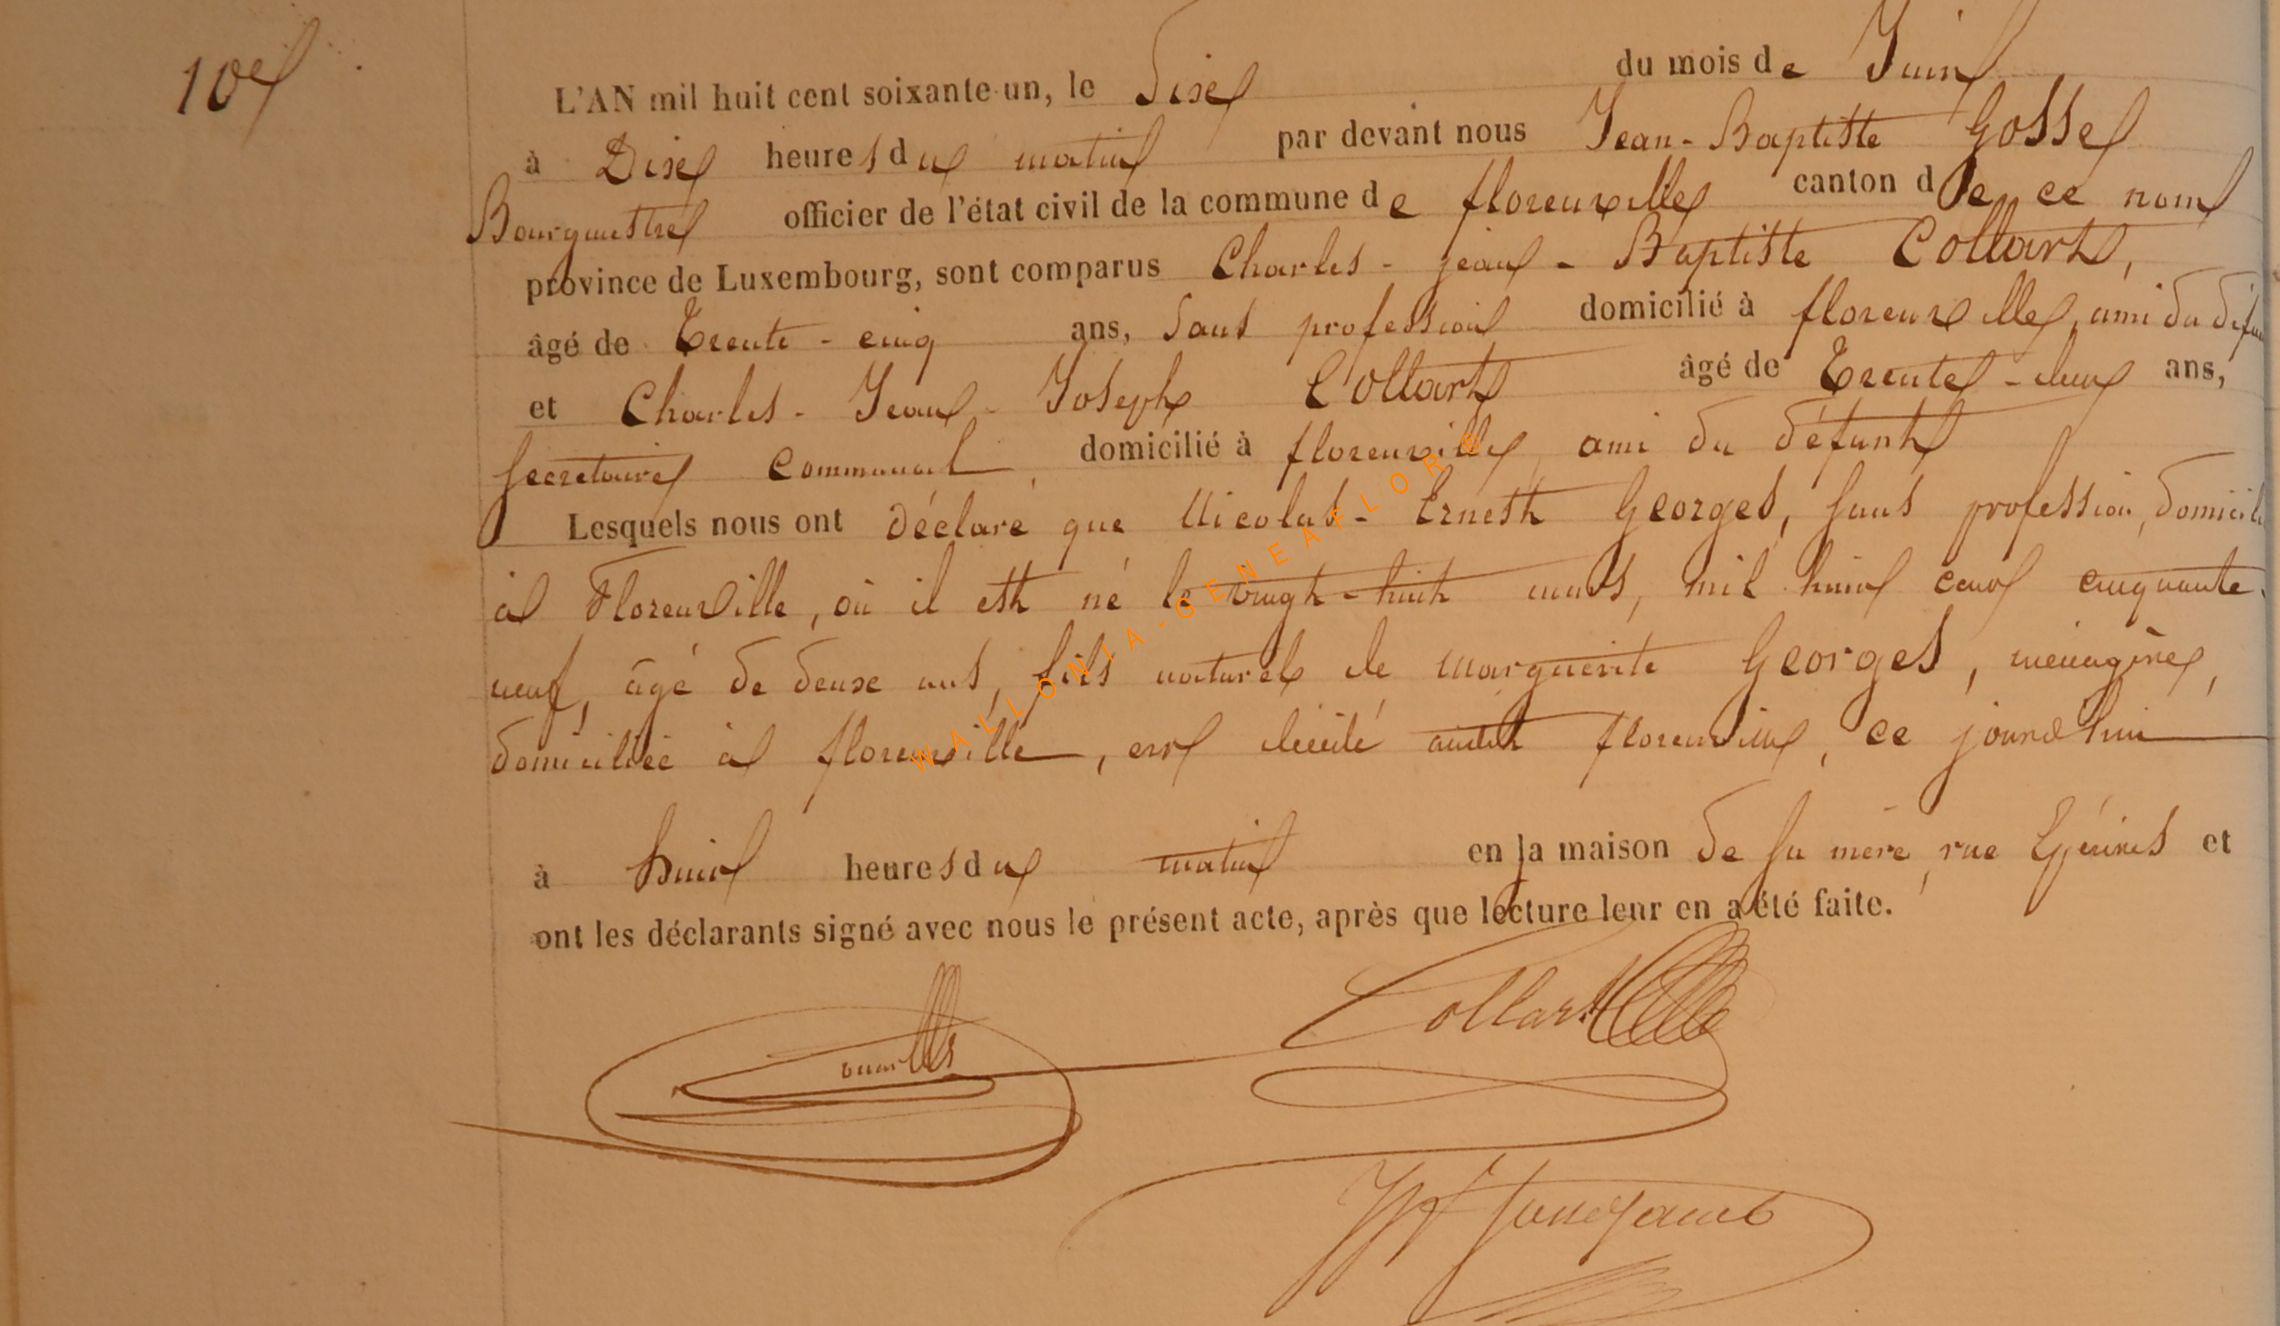 10e
L'AN mil huit cent soixante-un, le Dix du mois de Juin
à Dix heures du matin par devant nous Jean-Baptiste Gosse
Bourgmestre officier de l'état civil de la commune de florenville canton de ce nom
province de Luxembourg, sont comparus Charles-jean-Baptiste Collart,
âgé de Trente-cinq ans, Sans profession domicilié à florenville, ami du défun
et Charles-Jean-Joseph Collart âgé de Trente-deux ans,
Secretaire communal, domicilié à florenville, ami du défunt
Lesquels nous ont déclaré que Nicolas-Ernest Georges, Sans profession, domicilié
à Florenville, où il est né le vingt-huit mars, mil huit cent cinquante-
neuf, âgé de deux ans, fils naturel de Marguerite Georges, ménagère,
domiciliée à florenville, est décédé audit florenville, ce jourd'hui
à huit heures du matin en la maison de Sa mère, rue et
ont les déclarants signé avec nous le présent acte, après que lecture leur en a été faite.
Collart
WALLONIA-GENEAFLORE